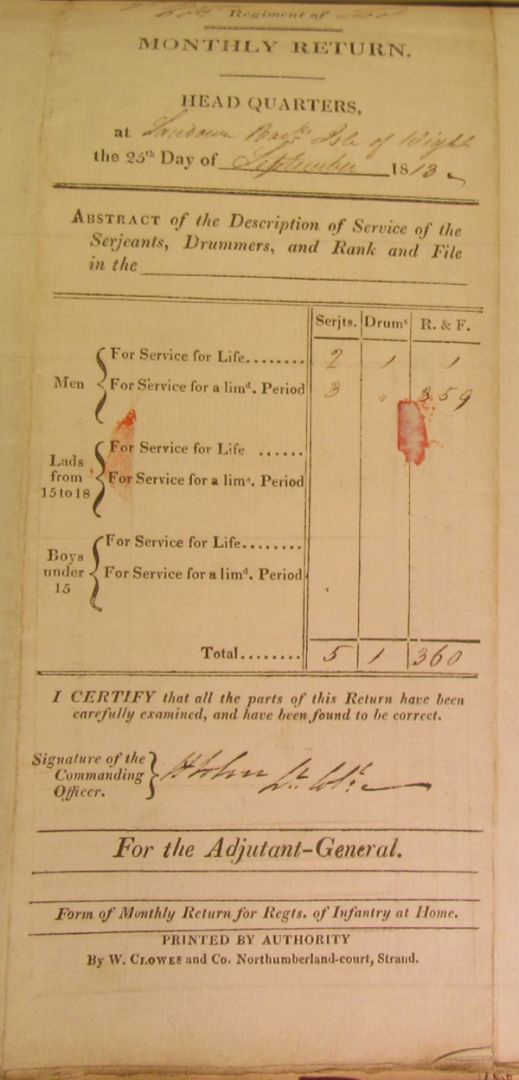 Regiment of
MONTHLY RETURN.
HEAD QUARTERS,
at Sandown Barks Isle of Wight
the 25th Day of September 1813
ABSTRACT of the Description of Service of the
Serjeants, Drummers, and Rank and File
in the
Serjts. Drums R. & F.
Men
For Service for Life........ 2 1 1
For Service for a limd. Period 3 " 359
Lads from 15 to 18
For Service for Life ......
For Service for a limd. Period
Boys under 15
For Service for Life........
For Service for a limd. Period
Total........ 5 1 360
I CERTIFY that all the parts of this Return have been
carefully examined, and have been found to be correct.
Signature of the
Commanding
Officer.
Lt. Col.
For the Adjutant-General.
Form of Monthly Return for Regts. of Infantry at Home.
PRINTED BY AUTHORITY
By W. CLOWES and Co. Northumberland-court, Strand.